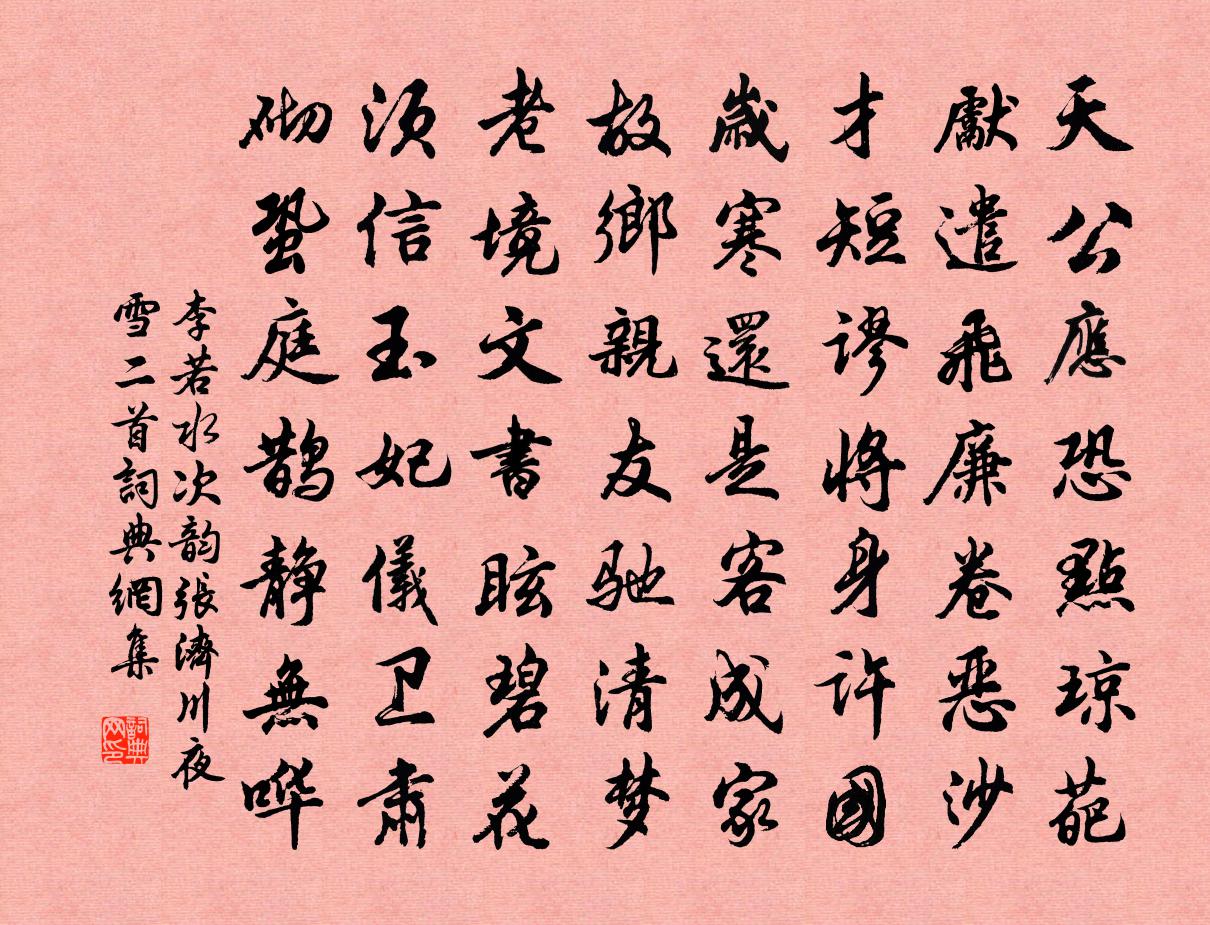 天公應恐點琼葩
獻遣飛廉卷恶沙
才短謬將身許國
歲寒還是客成家
故鄉親友馳清梦
老境文書眩碧花
須信玉妃儀卫肅
砌蛩庭鵲靜無哗
李若水次韵張濟川夜
雪二首詞典網集
詞典
网印